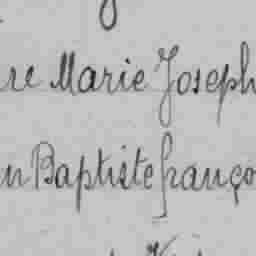 re Marie Joseph
n Baptiste franço